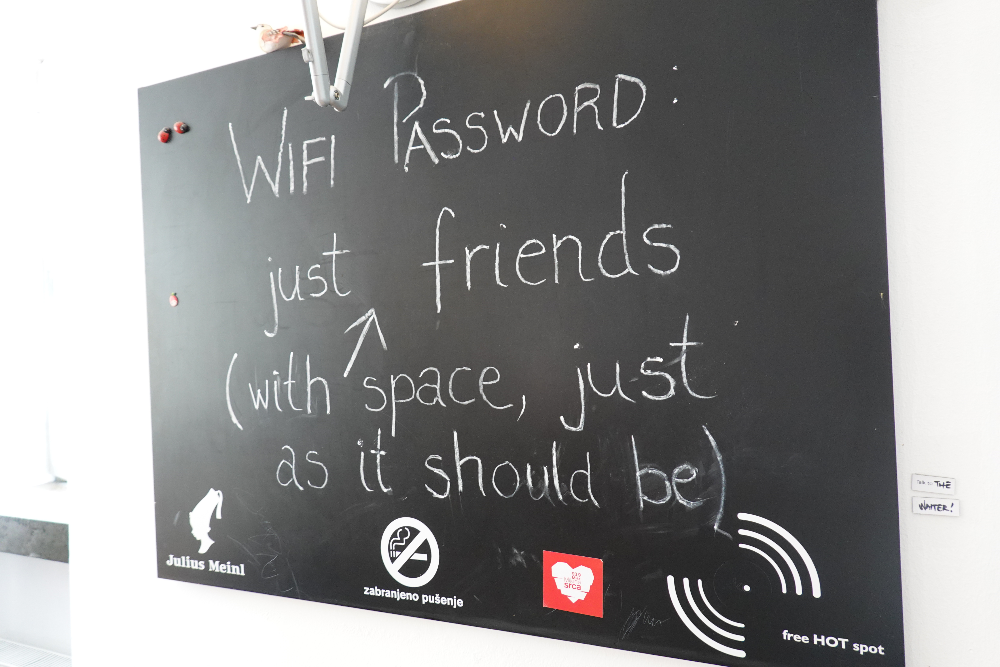 WIFI PASSWORD:
just friends
(with space, just
as it should be)
Julius Meinl
zabranjeno pušenje
srca
free HOT spot
THE
WAITER!